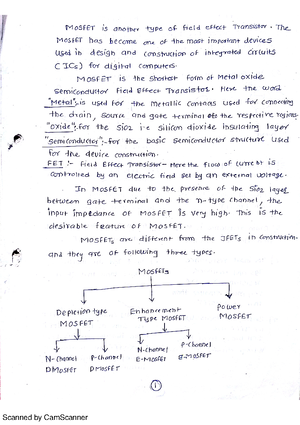 MOSFET is another type of field effect Transistor. The
MOSFET has become one of the most important devices
used in design and construction of integrated circuits
(ICs) for digital computers.
MOSFET is the shortest form of Metal oxide
Semiconductor field Effect Transistor. Here the word
"Metal" is used for the metallic contacts used for connecting
the drain, source and gate terminal to the respective regions.
"Oxide":- for the SiO2 i.e silicon dioxide insulating layer
"Semiconductor":- for the basic semiconductor structure used
for the device construction.
FET :- Field Effect Transistor - Here the flow of current is
controlled by an electric field set by an external voltage.
In MOSFET due to the presence of the SiO2 layer
between gate terminal and the n-type channel, the
input impedance of MOSFET is very high. This is the
desirable feature of MOSFET.
MOSFETs are different from the JFETs in construction.
and they are of following three types.
MOSFETs
Depletion type
MOSFET
Enhancement
Type MOSFET
Power
MOSFET
N-channel
DMOSFET
P-channel
DMOSFET
N-channel
E-MOSFET
P-channel
E-MOSFET
1
Scanned by CamScanner